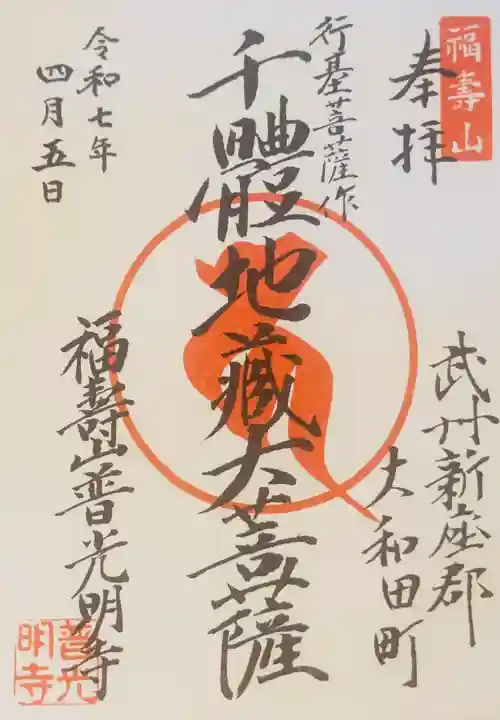 福壽山
奉拝
武州新座郡
大和田町
行基菩薩作
千體地藏大菩薩
令和七年
四月五日
福壽山普光明寺
普光
明寺